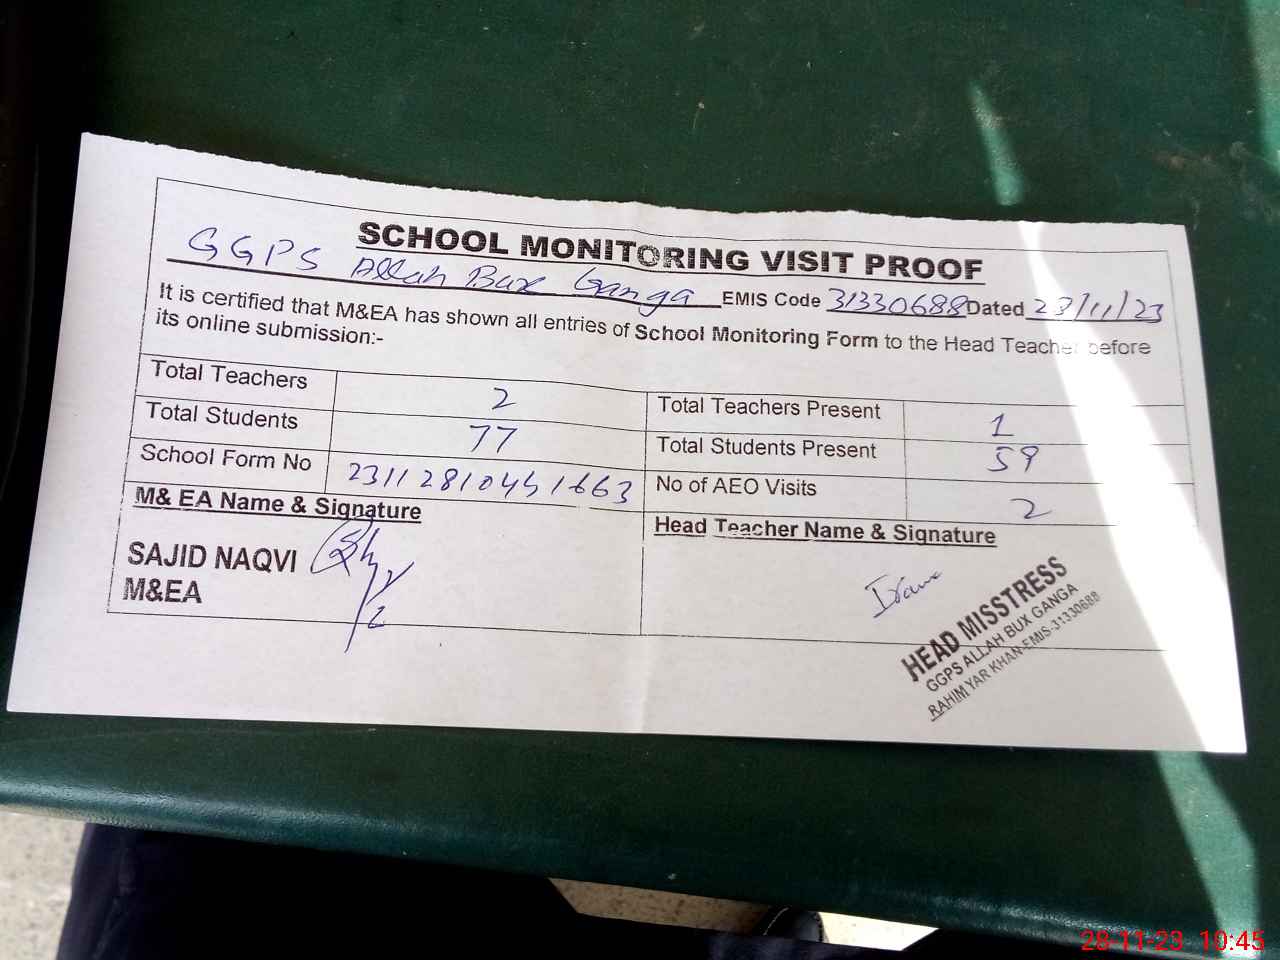 SCHOOL MONITORING VISIT PROOF
GGPS Allah Bux Ganga EMIS Code 31330688 Dated 23/11/23
It is certified that M&EA has shown all entries of School Monitoring Form to the Head Teacher before
its online submission:-
Total Teachers 2 Total Teachers Present 1
Total Students 77 Total Students Present 59
School Form No 23112810451663 No of AEO Visits 2
M& EA Name & Signature Head Teacher Name & Signature
SAJID NAQVI
M&EA
HEAD MISSTRESS
GGPS ALLAH BUX GANGA
RAHIM YAR KHAN-EMIS-31330688
28-11-23 10:45